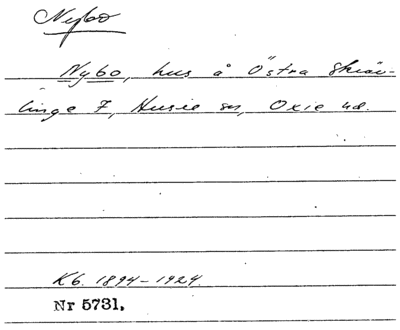 Nybo
Nybo, hus å Östra Skräv-
linge 7, Husie sn, Oxie hd.
Kb. 1894-1924.
Nr 5731.